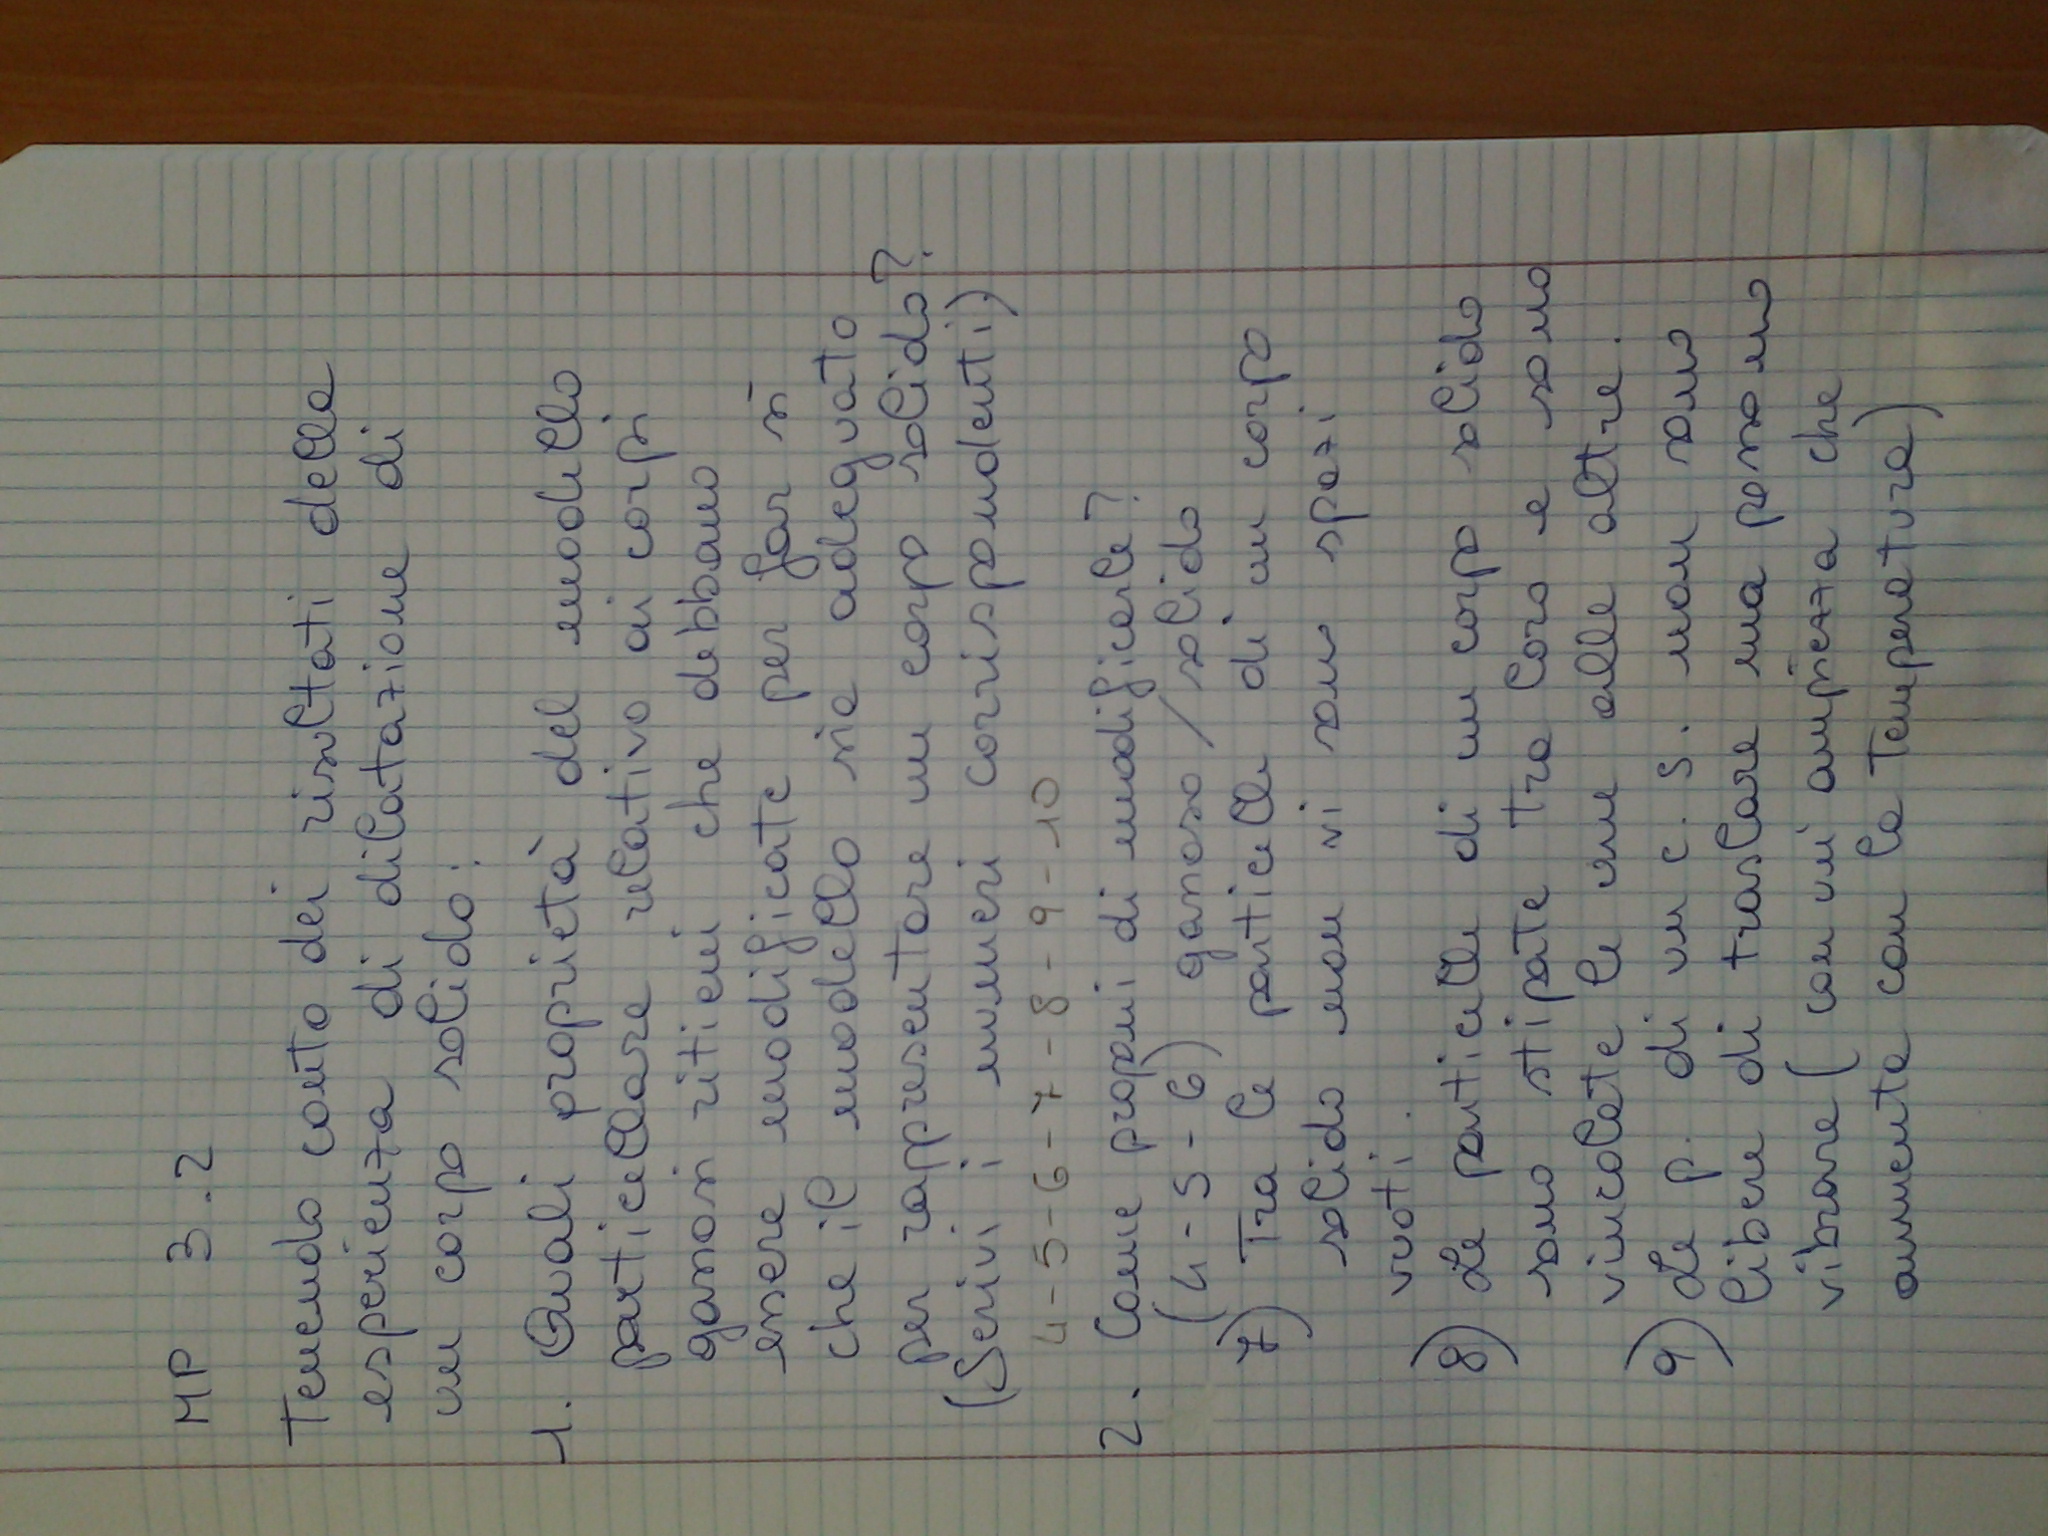 MP 3.2
Tenendo conto dei risultati della
esperienza di dilatazione di
un corpo solido:
1. Quali proprietà del modello
particellare relativo ai corpi
gassosi ritieni che debbano
essere modificate per far sì
che il modello sia adeguato
per rappresentare un corpo solido?
(Scrivi i numeri corrispondenti)
4-5-6-7-8-9-10
2. Come proponi di modificarle?
(4-5-6) gassoso / solido
7) Tra le particelle di un corpo
solido non vi sono spazi
vuoti.
8) Le particelle di un corpo solido
sono stipate tra loro e sono
vincolate le une alle altre.
9) Le p. di un c. s. non sono
libere di traslare ma possono
vibrare (con un'ampiezza che
aumenta con la temperatura)